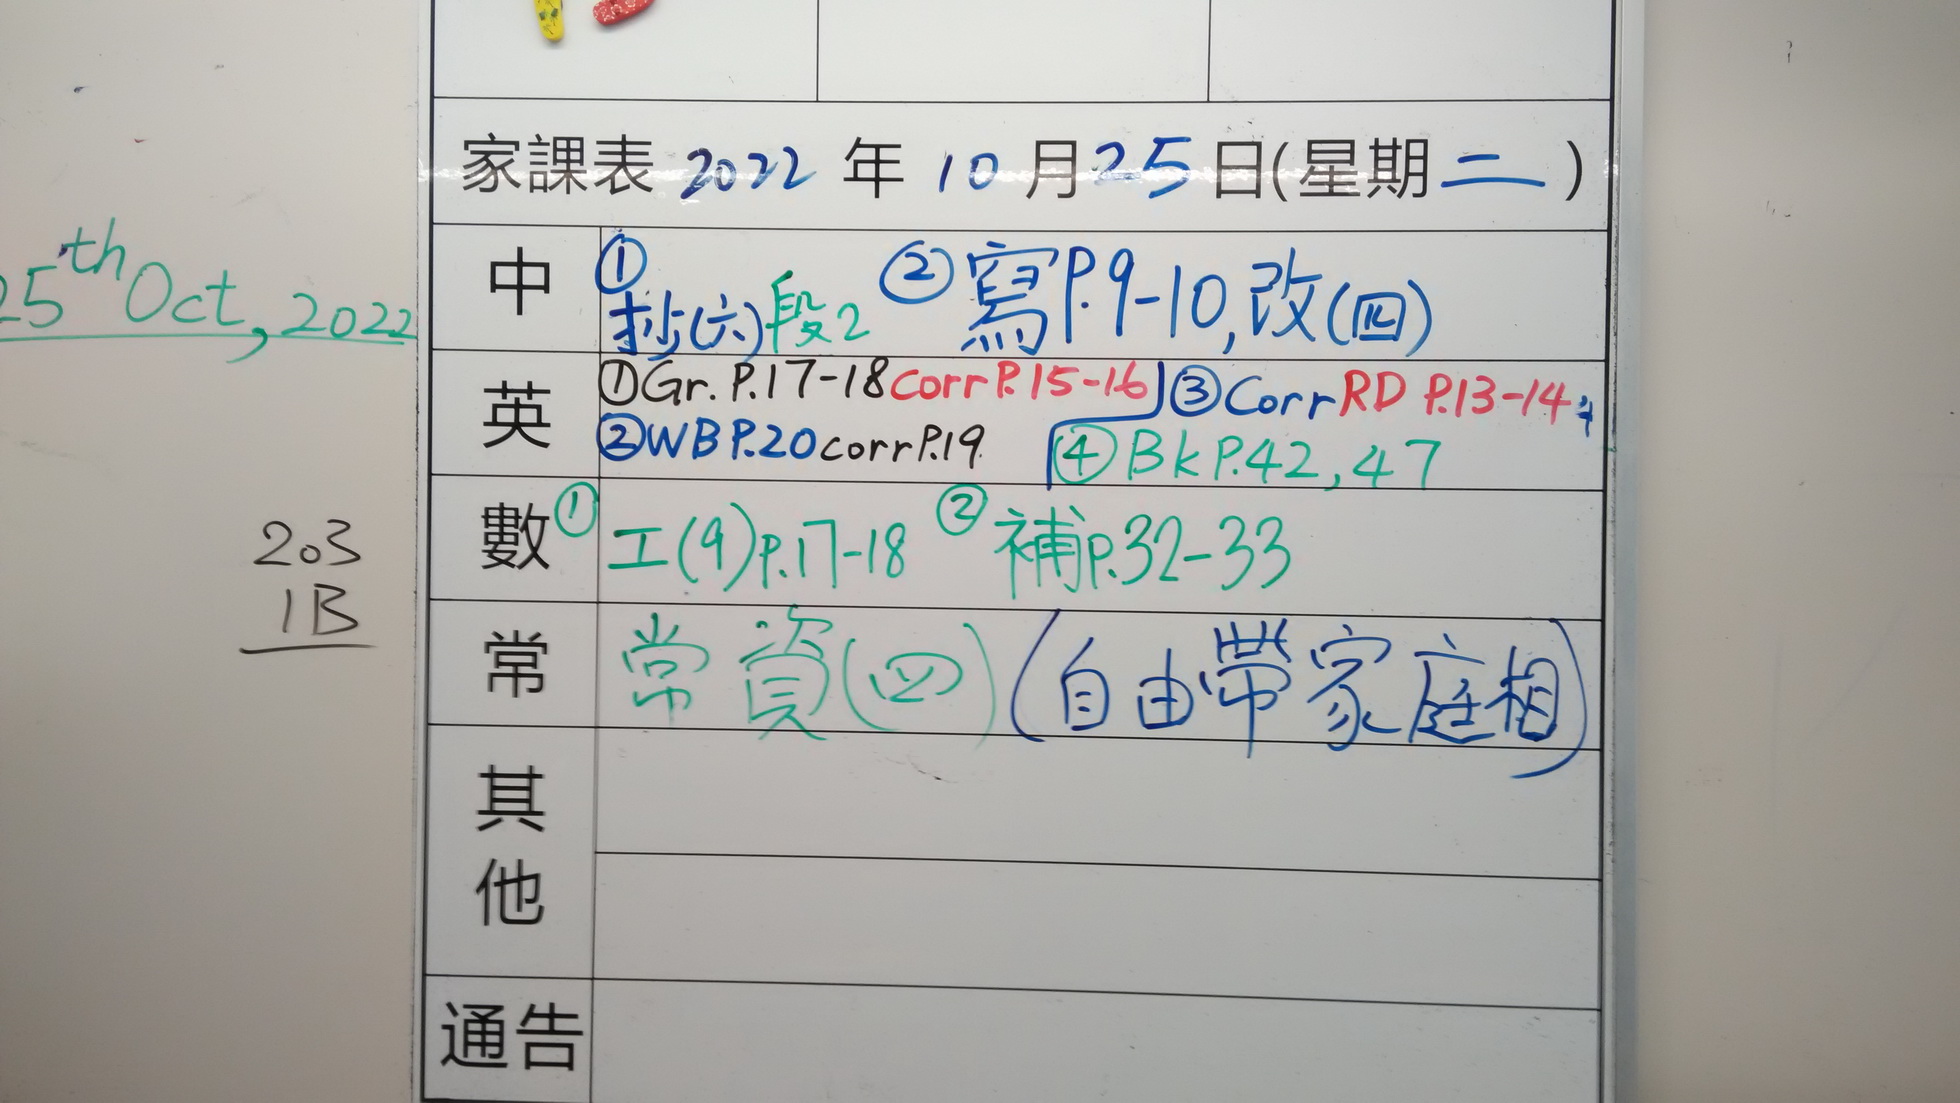 家課表 2022 年 10 月 25 日(星期 二 )
25th Oct, 2022
中 ① 抄(六)段2 ② 寫P.9-10,改(四)
英 ①Gr. P.17-18 corr P.15-16 ③Corr RD P.13-14
②WB P.20 corr P.19 ④Bk P.42, 47
數 ① 工(9)P.17-18 ② 補P.32-33
203
1B
常 常資(四) (自由帶家庭相)
其他
通告